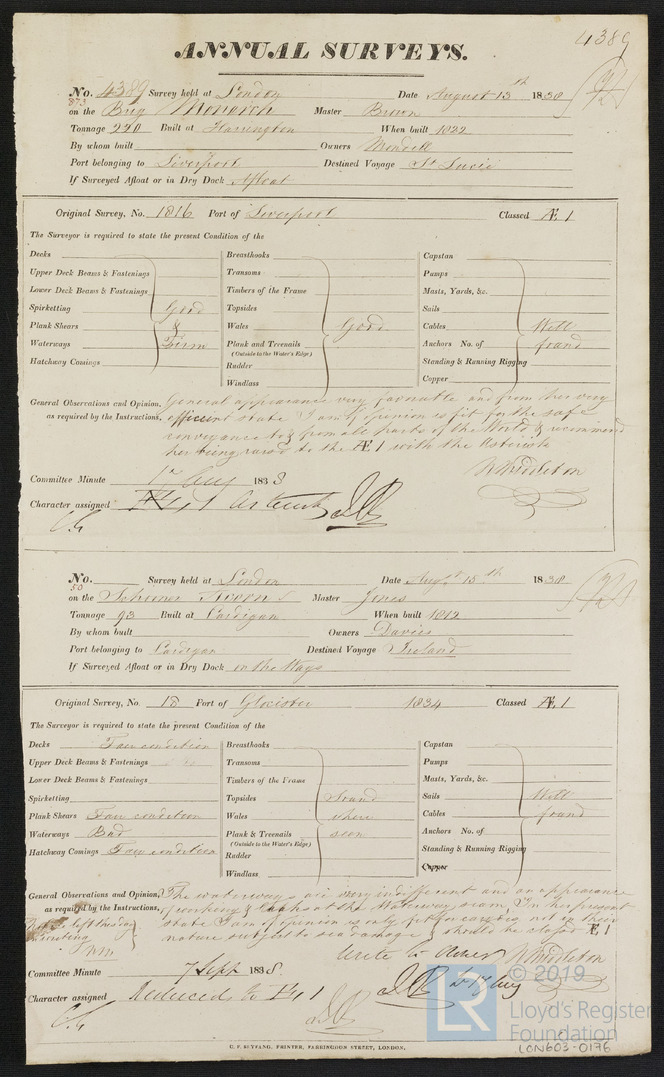 4389
ANNUAL SURVEYS.
No. 4389 Survey held at London Date August 13th 1838
373
on the Brig Monarch Master Brown
Tonnage 220 Built at Harrington When built 1822
By whom built Owners Mondell
Port belonging to Liverpool Destined Voyage St Lucie
If Surveyed Afloat or in Dry Dock Afloat
Original Survey, No. 1816 Port of Liverpool Classed Æ 1
The Surveyor is required to state the present Condition of the
Decks Breasthooks Capstan
Upper Deck Beams & Fastenings Transoms Pumps
Lower Deck Beams & Fastenings Timbers of the Frame Masts, Yards, &c.
Spirketting Good Topsides Sails
Plank Shears & Wales Good Cables Well
Waterways Firm Plank and Treenails Anchors No. of found
(Outside to the Water's Edge)
Hatchway Comings Rudder Standing & Running Rigging
Windlass Copper
General Observations and Opinion, General appearance very favorable and from her very
as required by the Instructions, efficient state I am of opinion is fit for the safe
conveyance to & from all parts of the World & recommend
her being raised to the Æ 1 with the Asterisk
N Middleton
Committee Minute 17 Aug 1838
Character assigned Æ 1 Asterisk
Survey held at London Date Augst 15th 1838
No.
50
on the Schooner Master Jones
Tonnage 93 Built at Cardigan When built 1812
By whom built Owners Davies
Port belonging to Cardigan Destined Voyage Ireland
If Surveyed Afloat or in Dry Dock on the Ways
Original Survey, No. 18 Port of Glocister 1834 Classed Æ 1
The Surveyor is required to state the present Condition of the
Decks Fair condition Breasthooks Capstan
Upper Deck Beams & Fastenings Transoms Pumps
Lower Deck Beams & Fastenings Timbers of the Frame Masts, Yards, &c.
Spirketting Topsides Sound Sails Well
Plank Shears Fair condition Wales where Cables found
Waterways Bad Plank & Treenails seen Anchors No. of
(Outside to the Water's Edge)
Hatchway Comings Fair condition Rudder Standing & Running Rigging
Windlass Copper
General Observations and Opinion, The waterways are very indifferent and an appearance
as required by the Instructions, of working at the Waterway seam. In her present
state I am of opinion is only fit for cargoes not in their
nature subject to sea damage & should be classed Æ 1
Write to Owner N Middleton
Committee Minute 7 Sept 1838.
17 Aug
Character assigned Reduced to Æ 1
© 2019
LR
Lloyd's Register
Foundation
LON603-0176
C. F. SEYFANG, PRINTER, FARRINGDON STREET, LONDON.